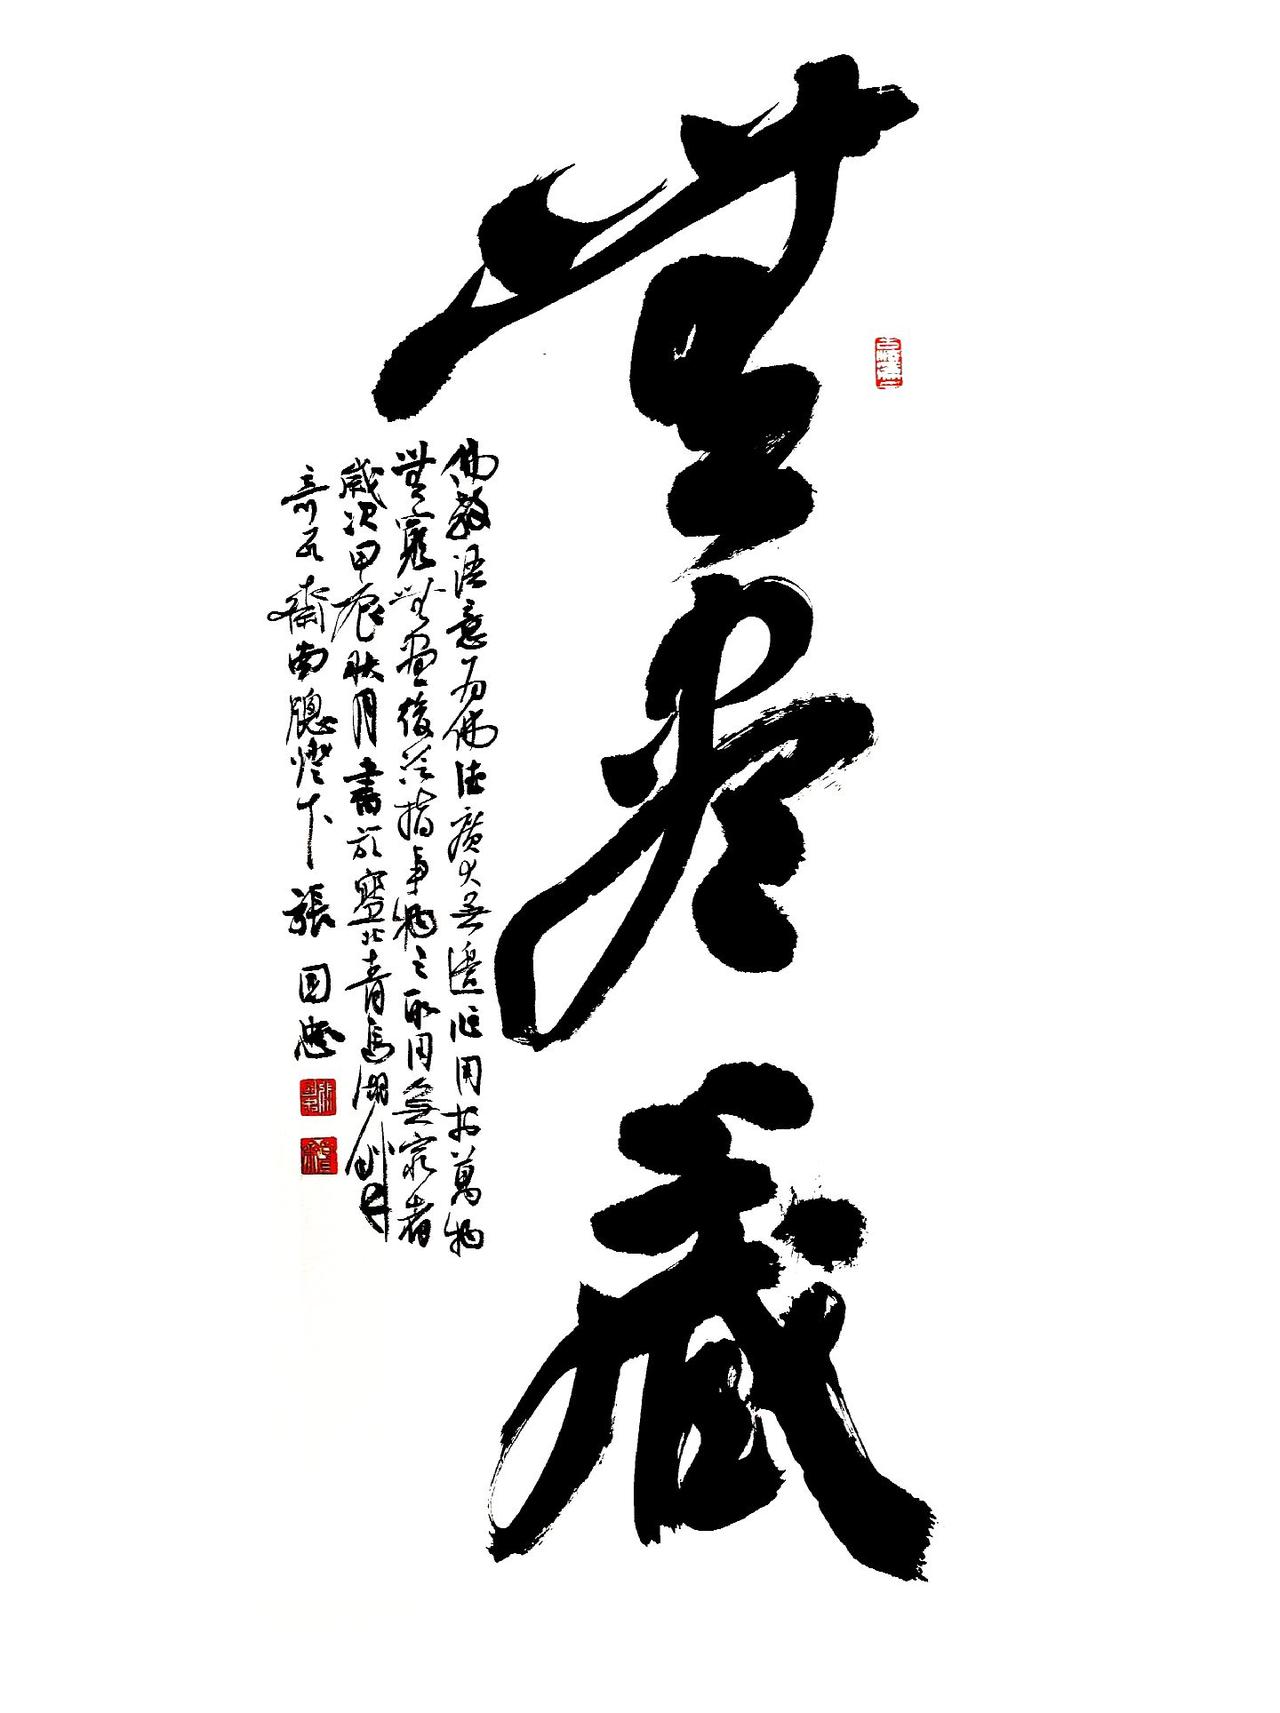 無盡藏
佛教語意為佛法廣大無邊作用於萬物
無窮無盡後泛指事物之取用無窮者
歲次甲辰秋月書於寧北青鳥湖
奇石齋南窗燈下張國忠